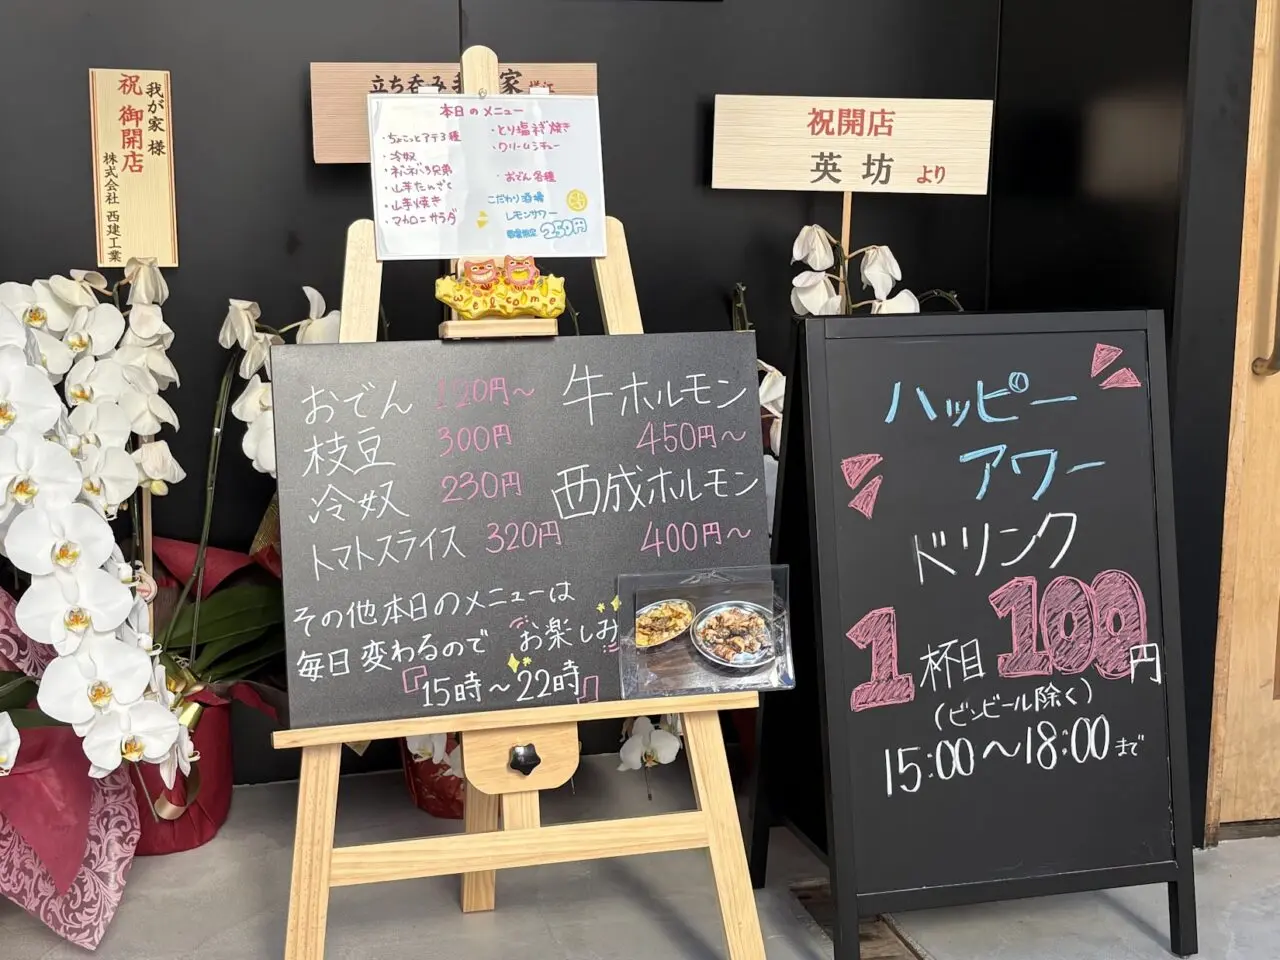 祝 御開店
我が家 様
株式会社 西建工業
立ち呑み 我 家 様江
本日のメニュー
・ちょこっとアテ3種
・冷奴
・ネバネバ3兄弟
・山芋たんざく
・山芋焼き
・マカロニサラダ
・とり塩ネギ焼き
・クリームシチュー
・おでん各種
こだわり酒場
レモンサワー
250円
welcome
祝開店
英坊 より
おでん 120円～
枝豆 300円
冷奴 230円
トマトスライス 320円
牛ホルモン
450円～
西成ホルモン
400円～
その他本日のメニューは
毎日変わるので お楽しみ
15時～22時
ハッピー
アワー
ドリンク
1杯目 100円
(ビンビール除く)
15:00～18:00まで